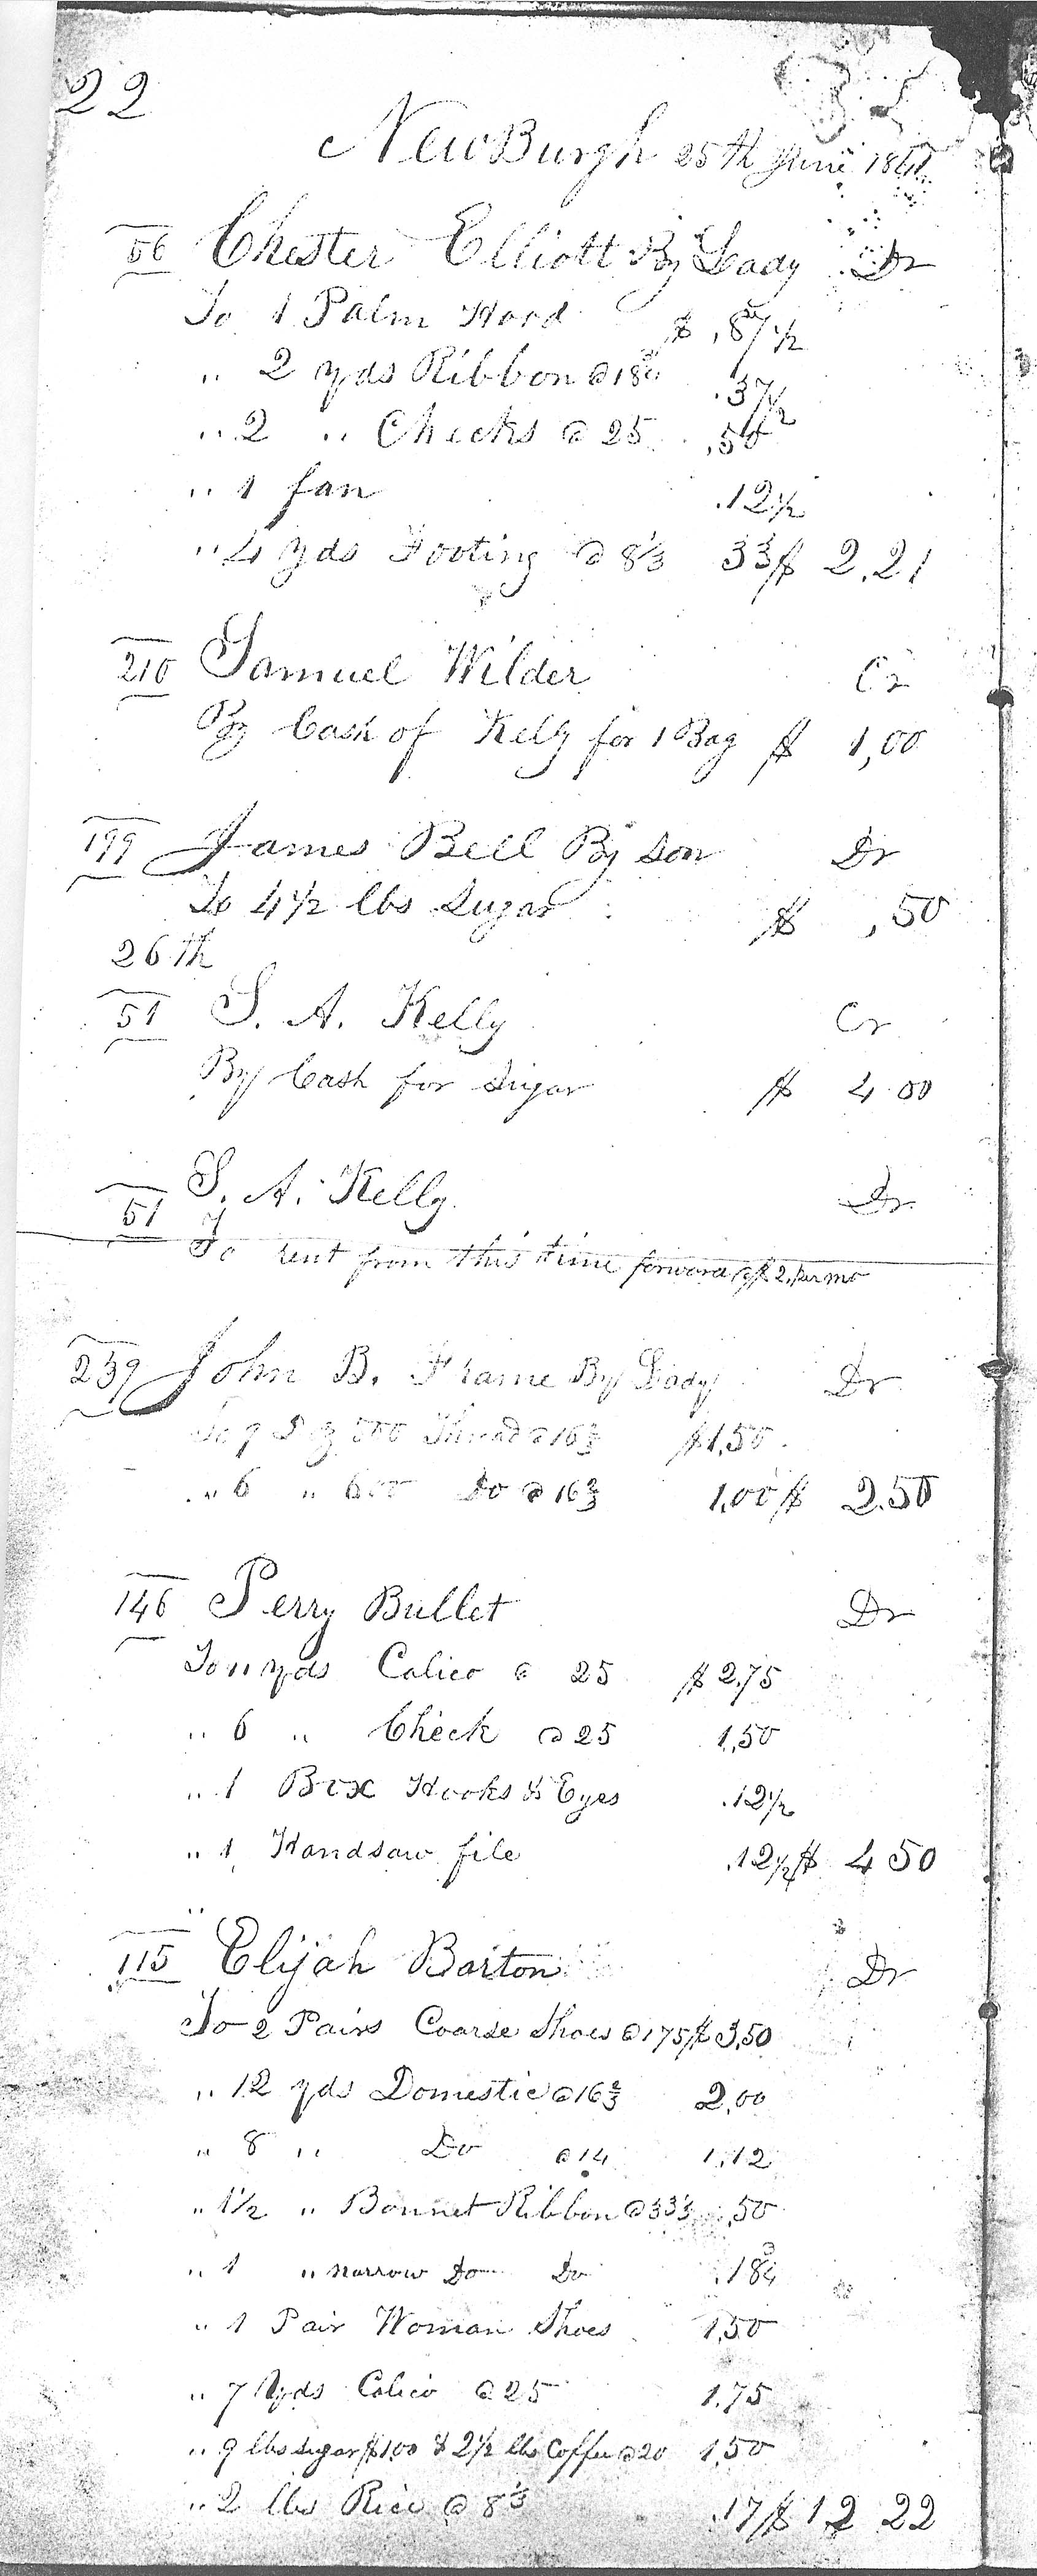 22
NewBurgh 25th June
56 Chester Elliott By Lady Dr
To 1 Palm Hood $ ,87 1/2
" 2 yds Ribbon @ 18 3/4 .37 1/2
" 2 " Checks @ 25 ,50
" 1 fan .12 1/2
" 4 yds Footing @ 8 1/3 33 $ 2.21
210 Samuel Wilder Cr
By Cash of Kelly for 1 Bag $ 1,00
199 James Bell By Son Dr
To 4 1/2 lbs Sugar $ ,50
26th
51 S. A. Kelly Cr
By Cash for Sugar $ 4.00
51 S. A. Kelly Dr
To rent from this time forward @ $2, per mo
239 John B. Frame By Lady Dr
To 9 500 Thread @ 16 2/3 $1,50
" 6 " 600 Do @ 16 2/3 1,00 $ 2.50
146 Perry Bullet Dr
To 11 yds Calico @ 25 $ 2.75
" 6 " Check @ 25 1,50
" 1 Box Hooks & Eyes .12 1/2
" 1 Handsaw file .12 1/2 $ 4 50
"
115 Elijah Barton Dr
To 2 Pairs Coarse Shoes @ 175 $ 3,50
" 12 yds Domestic @ 16 2/3 2,00
" 8 " Do @ 14 1,12
" 1 1/2 " Bonnet Ribbon @ 33 1/3 ,50
" 1 " narrow Do Do .18 3/4
" 1 Pair Woman Shoes 1,50
" 7 Yds Calico @ 25 1.75
" 9 lbs Sugar $1,00 & 2 1/2 lbs Coffee @ 20 1,50
" 2 lbs Rice @ 8 1/3 .17 $ 12 22